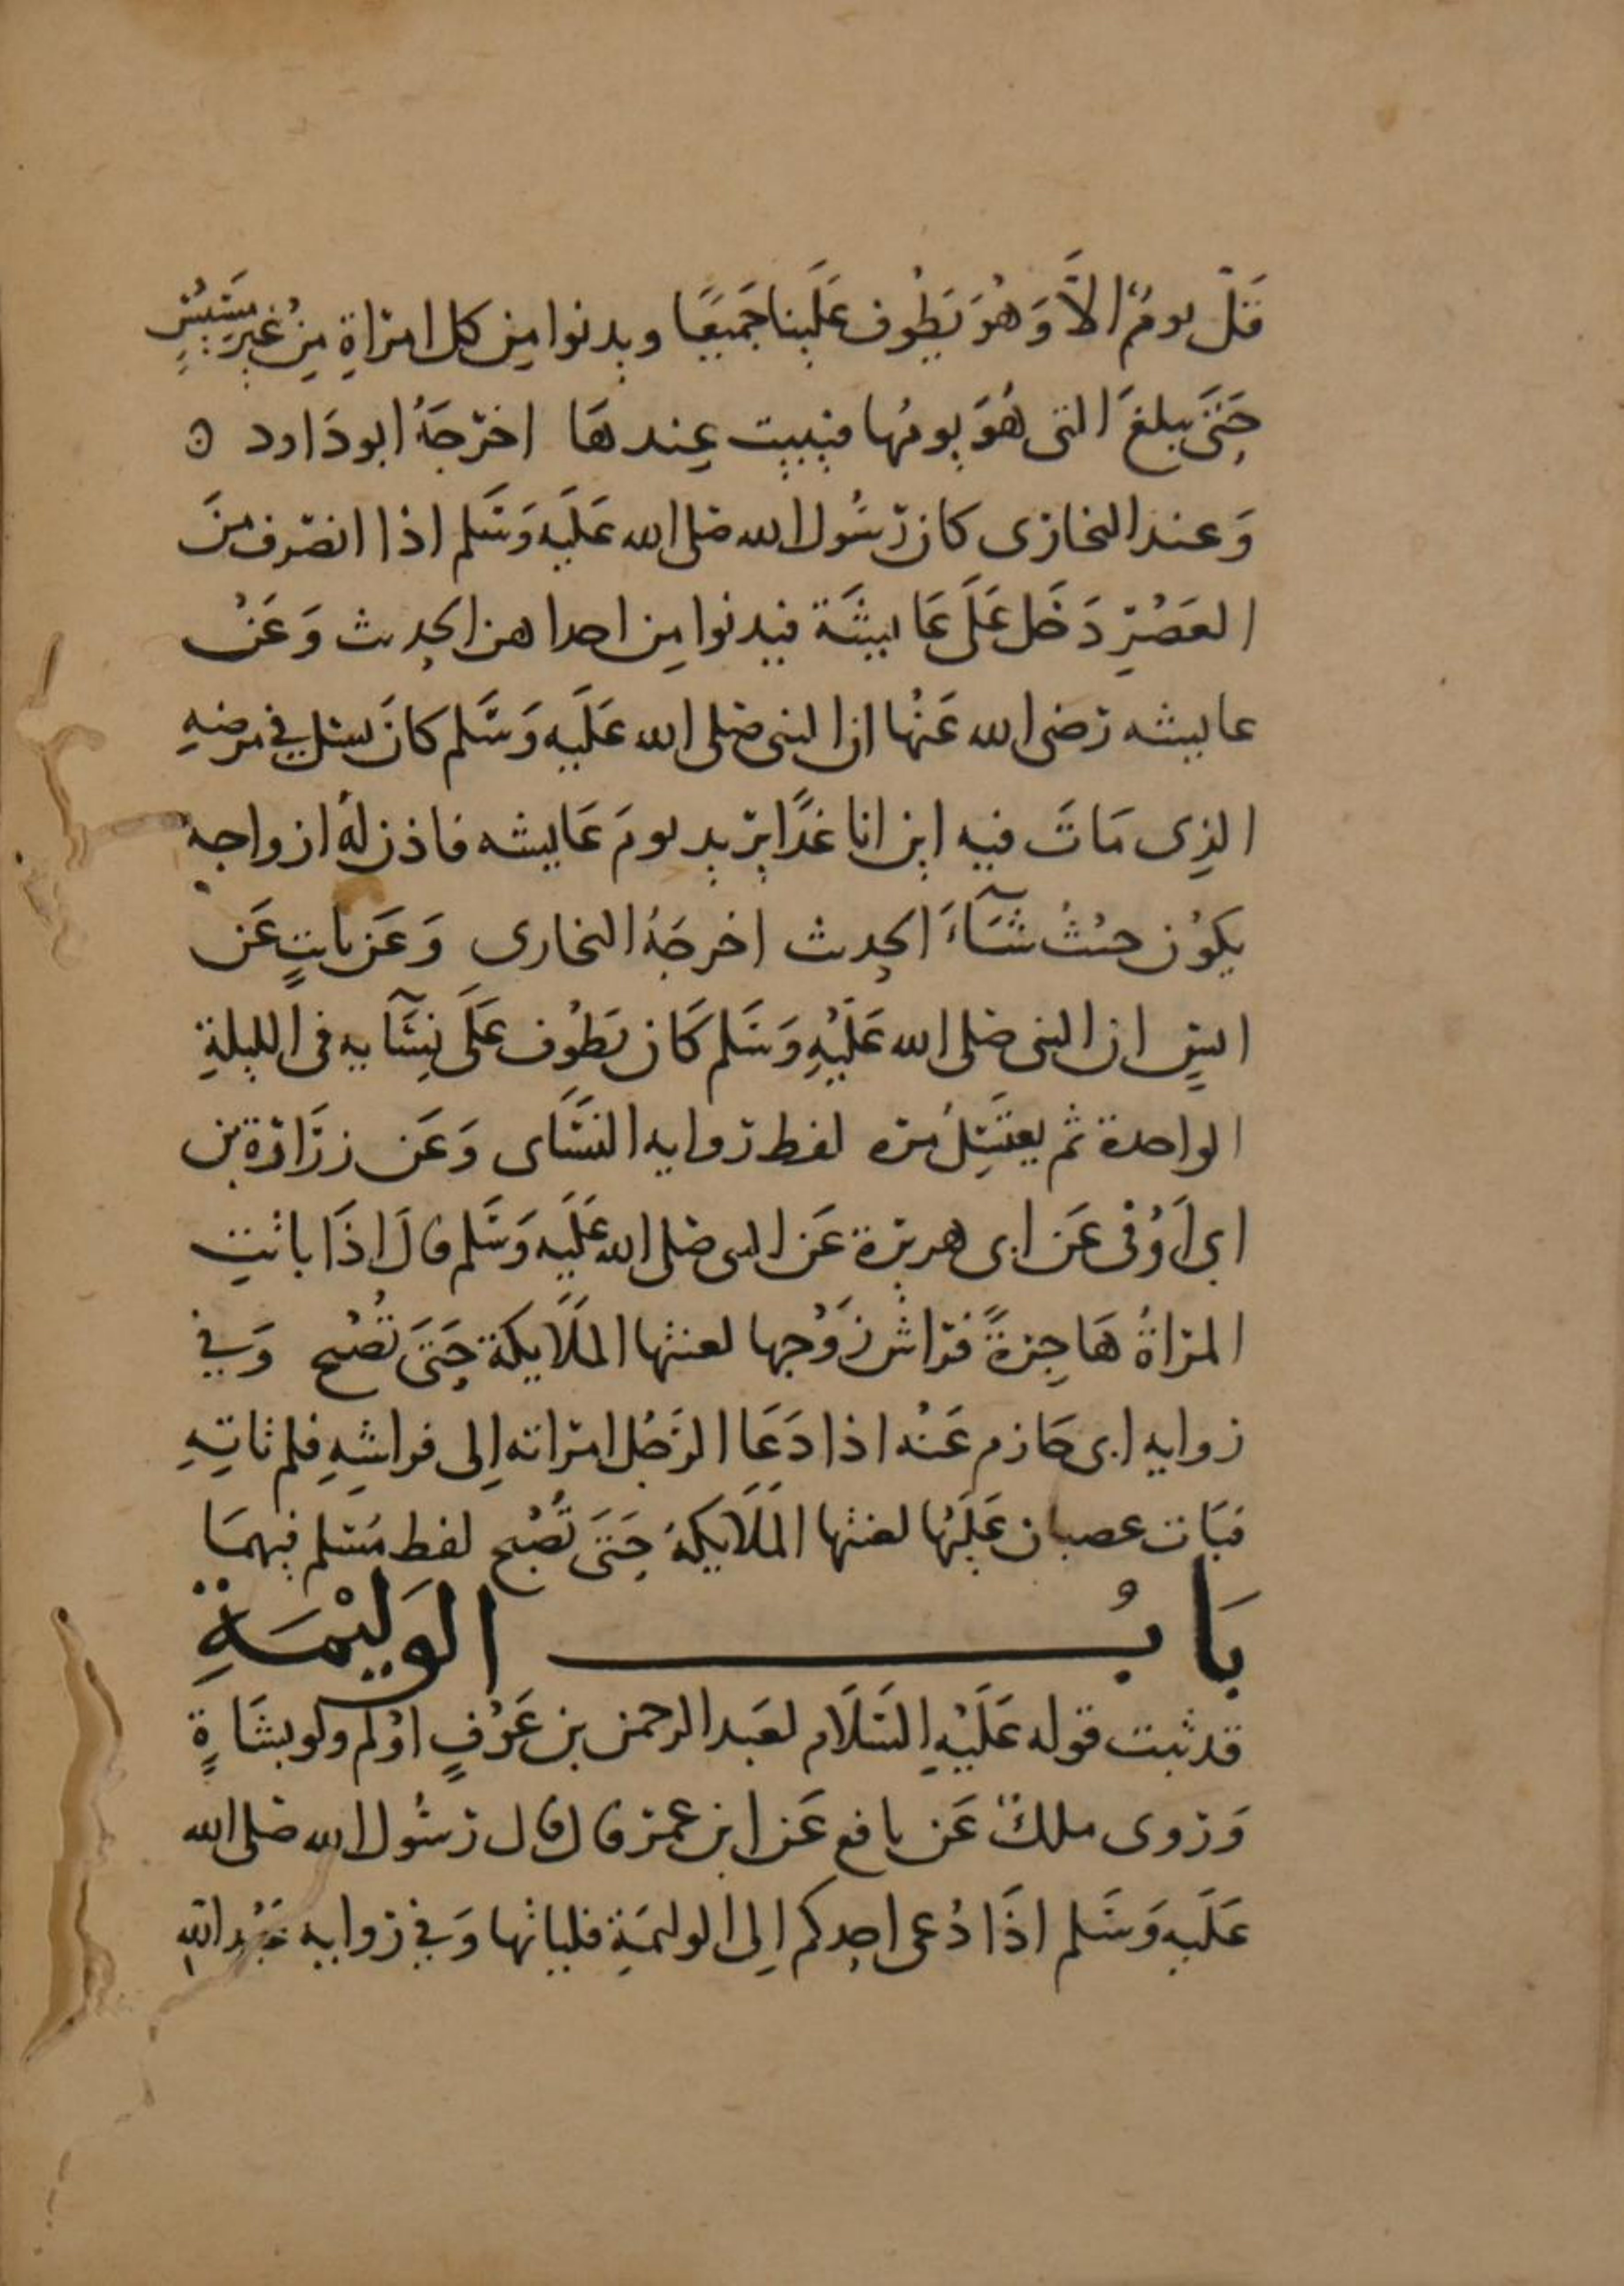 قَلّ يومٌ الاَّ وَهُوَ يَطُوف عَلَينا جَميعًا ويدنوا مِن كل امرَاةٍ مِن غيرِ مَسِيْسٍ
حَتىَ يبلغَ التى هُوَ يومُها فيبيت عِندهَا اخرَجَهُ ابو دَاود ه
وَعند البخارى كان رَسُول الله صلى الله عَليَه وَسَلم اذا انصَرف منَ
العَصْرِ دَخَل عَلَى عَايشَة فيدنوا مِن احداهن الحديث وَعَنْ
عايشه رَضى الله عَنْها ان النبى صلى الله عَلَيه وَسَلم كانَ يسئل في مرضهِ
الذِى مَاتَ فيه اين انا غدًا يريد يومَ عَايشه فاذن لهُ ازواجهُ
يكوُن حيْثُ شَآءَ الحديث اخرجَهُ البخارى وَعَن ثابتٍ عَن
انسٍ ان النبى صلى الله عَلَيْهِ وَسَلم كَان يَطُوف عَلَى نِسَآيه فى الليلةِ
الواحدة ثم يغتَسِلُ مرَه لفظ رَوايه النسَّاى وَعَن زرَارَة بن
ابي اَوْفى عَن ابى هريرَة عَن النبى صلى الله عَليَه وَسَلم قالَ اذَا باتتِ
المرَاةُ هَاجِرةً فرَاش زَوْجها لعنتها الملَايكة حَتىَ تُصْبح وَفي
رَوايه ابى حَازم عَنْه اذا دَعَا الرَجُل امرَاته اِلى فراشهِ فلم تاتِهِ
فبَات غصبان عَلَيْها لعنتها الملَايكة حَتىَ تُصْبح لفظ مُسَلم فيهمَا
بَابُ الوَليْمَةِ
قد ثبت قوله عَلَيْهِ السَلَام لعَبد الرحمن بن عَوْفٍ اوْلم ولو بشَاةٍ
وَرَوى ملكٌ عَن نافع عَن ابن عمرَ قال قال رَسُول الله صَلى الله
عَلَيه وَسَلم اذَا دُعى احدكم اِلى الوليمَةِ فلياتها وَفي رَوايه عَبْد الله